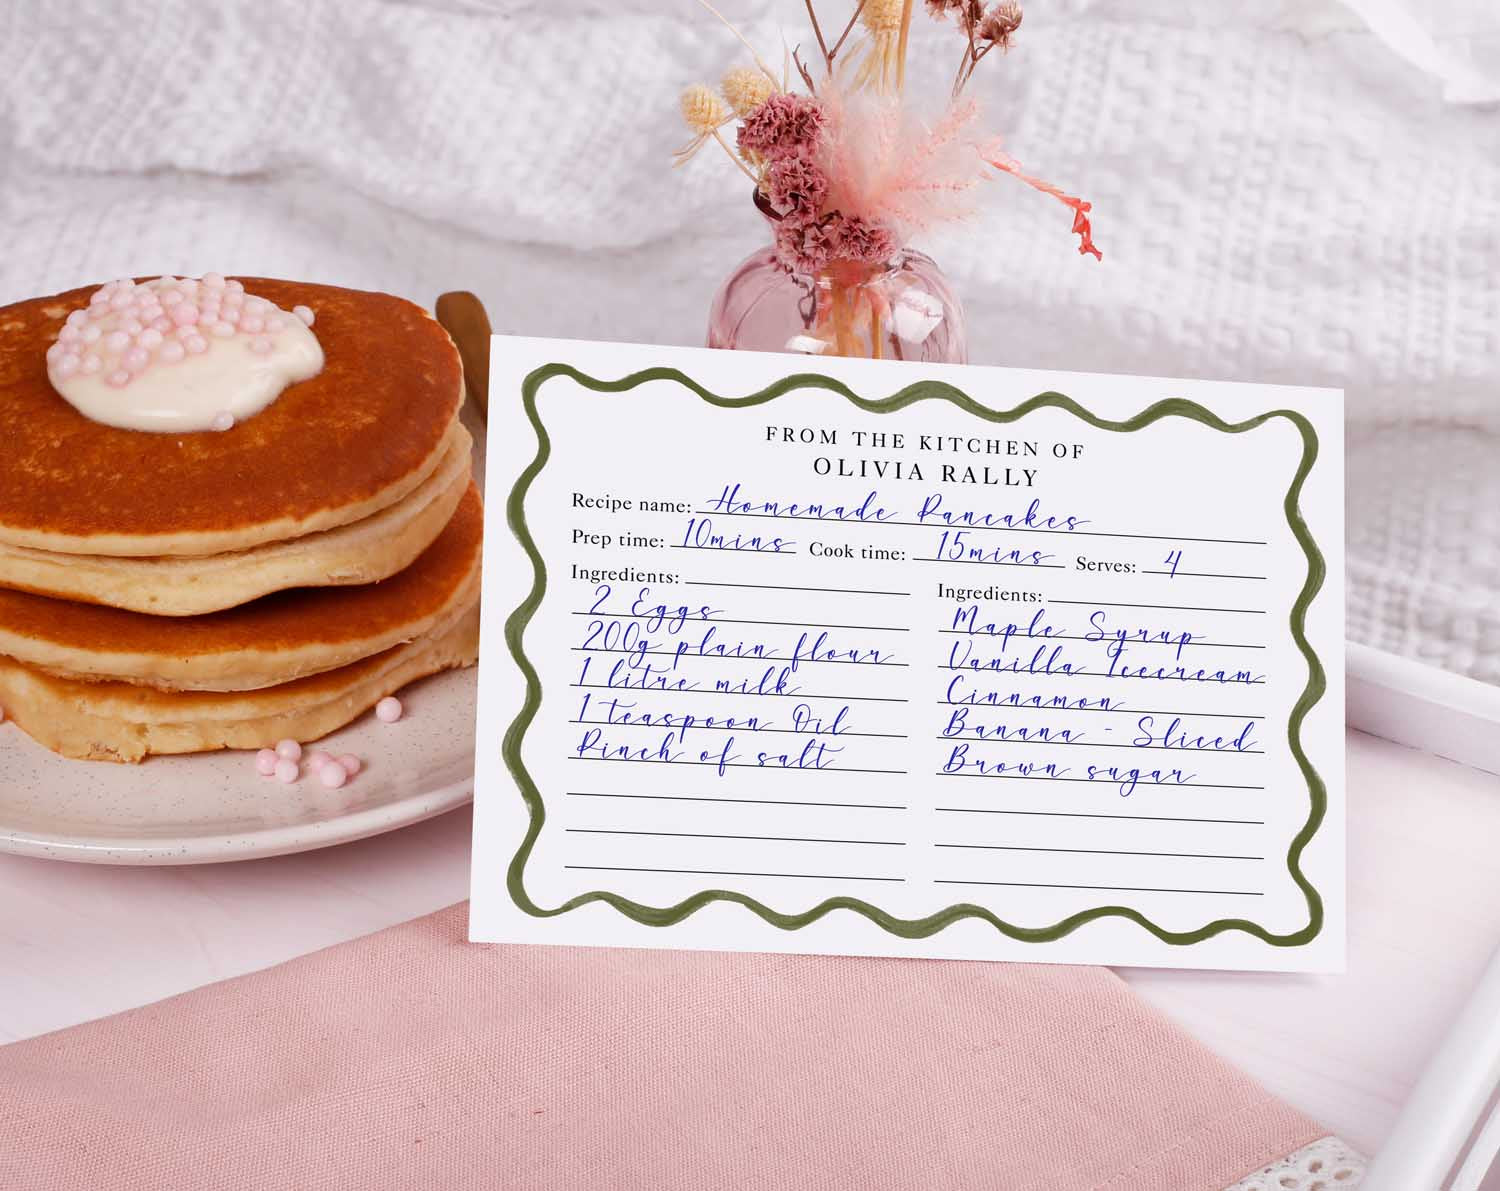 FROM THE KITCHEN OF
OLIVIA RALLY
Recipe name: Homemade Pancakes
Prep time: 10mins Cook time: 15mins Serves: 4
Ingredients:
2 Eggs
200g plain flour
1 litre milk
1 teaspoon Oil
Pinch of salt
Ingredients:
Maple Syrup
Vanilla Icecream
Cinnamon
Banana - Sliced
Brown sugar